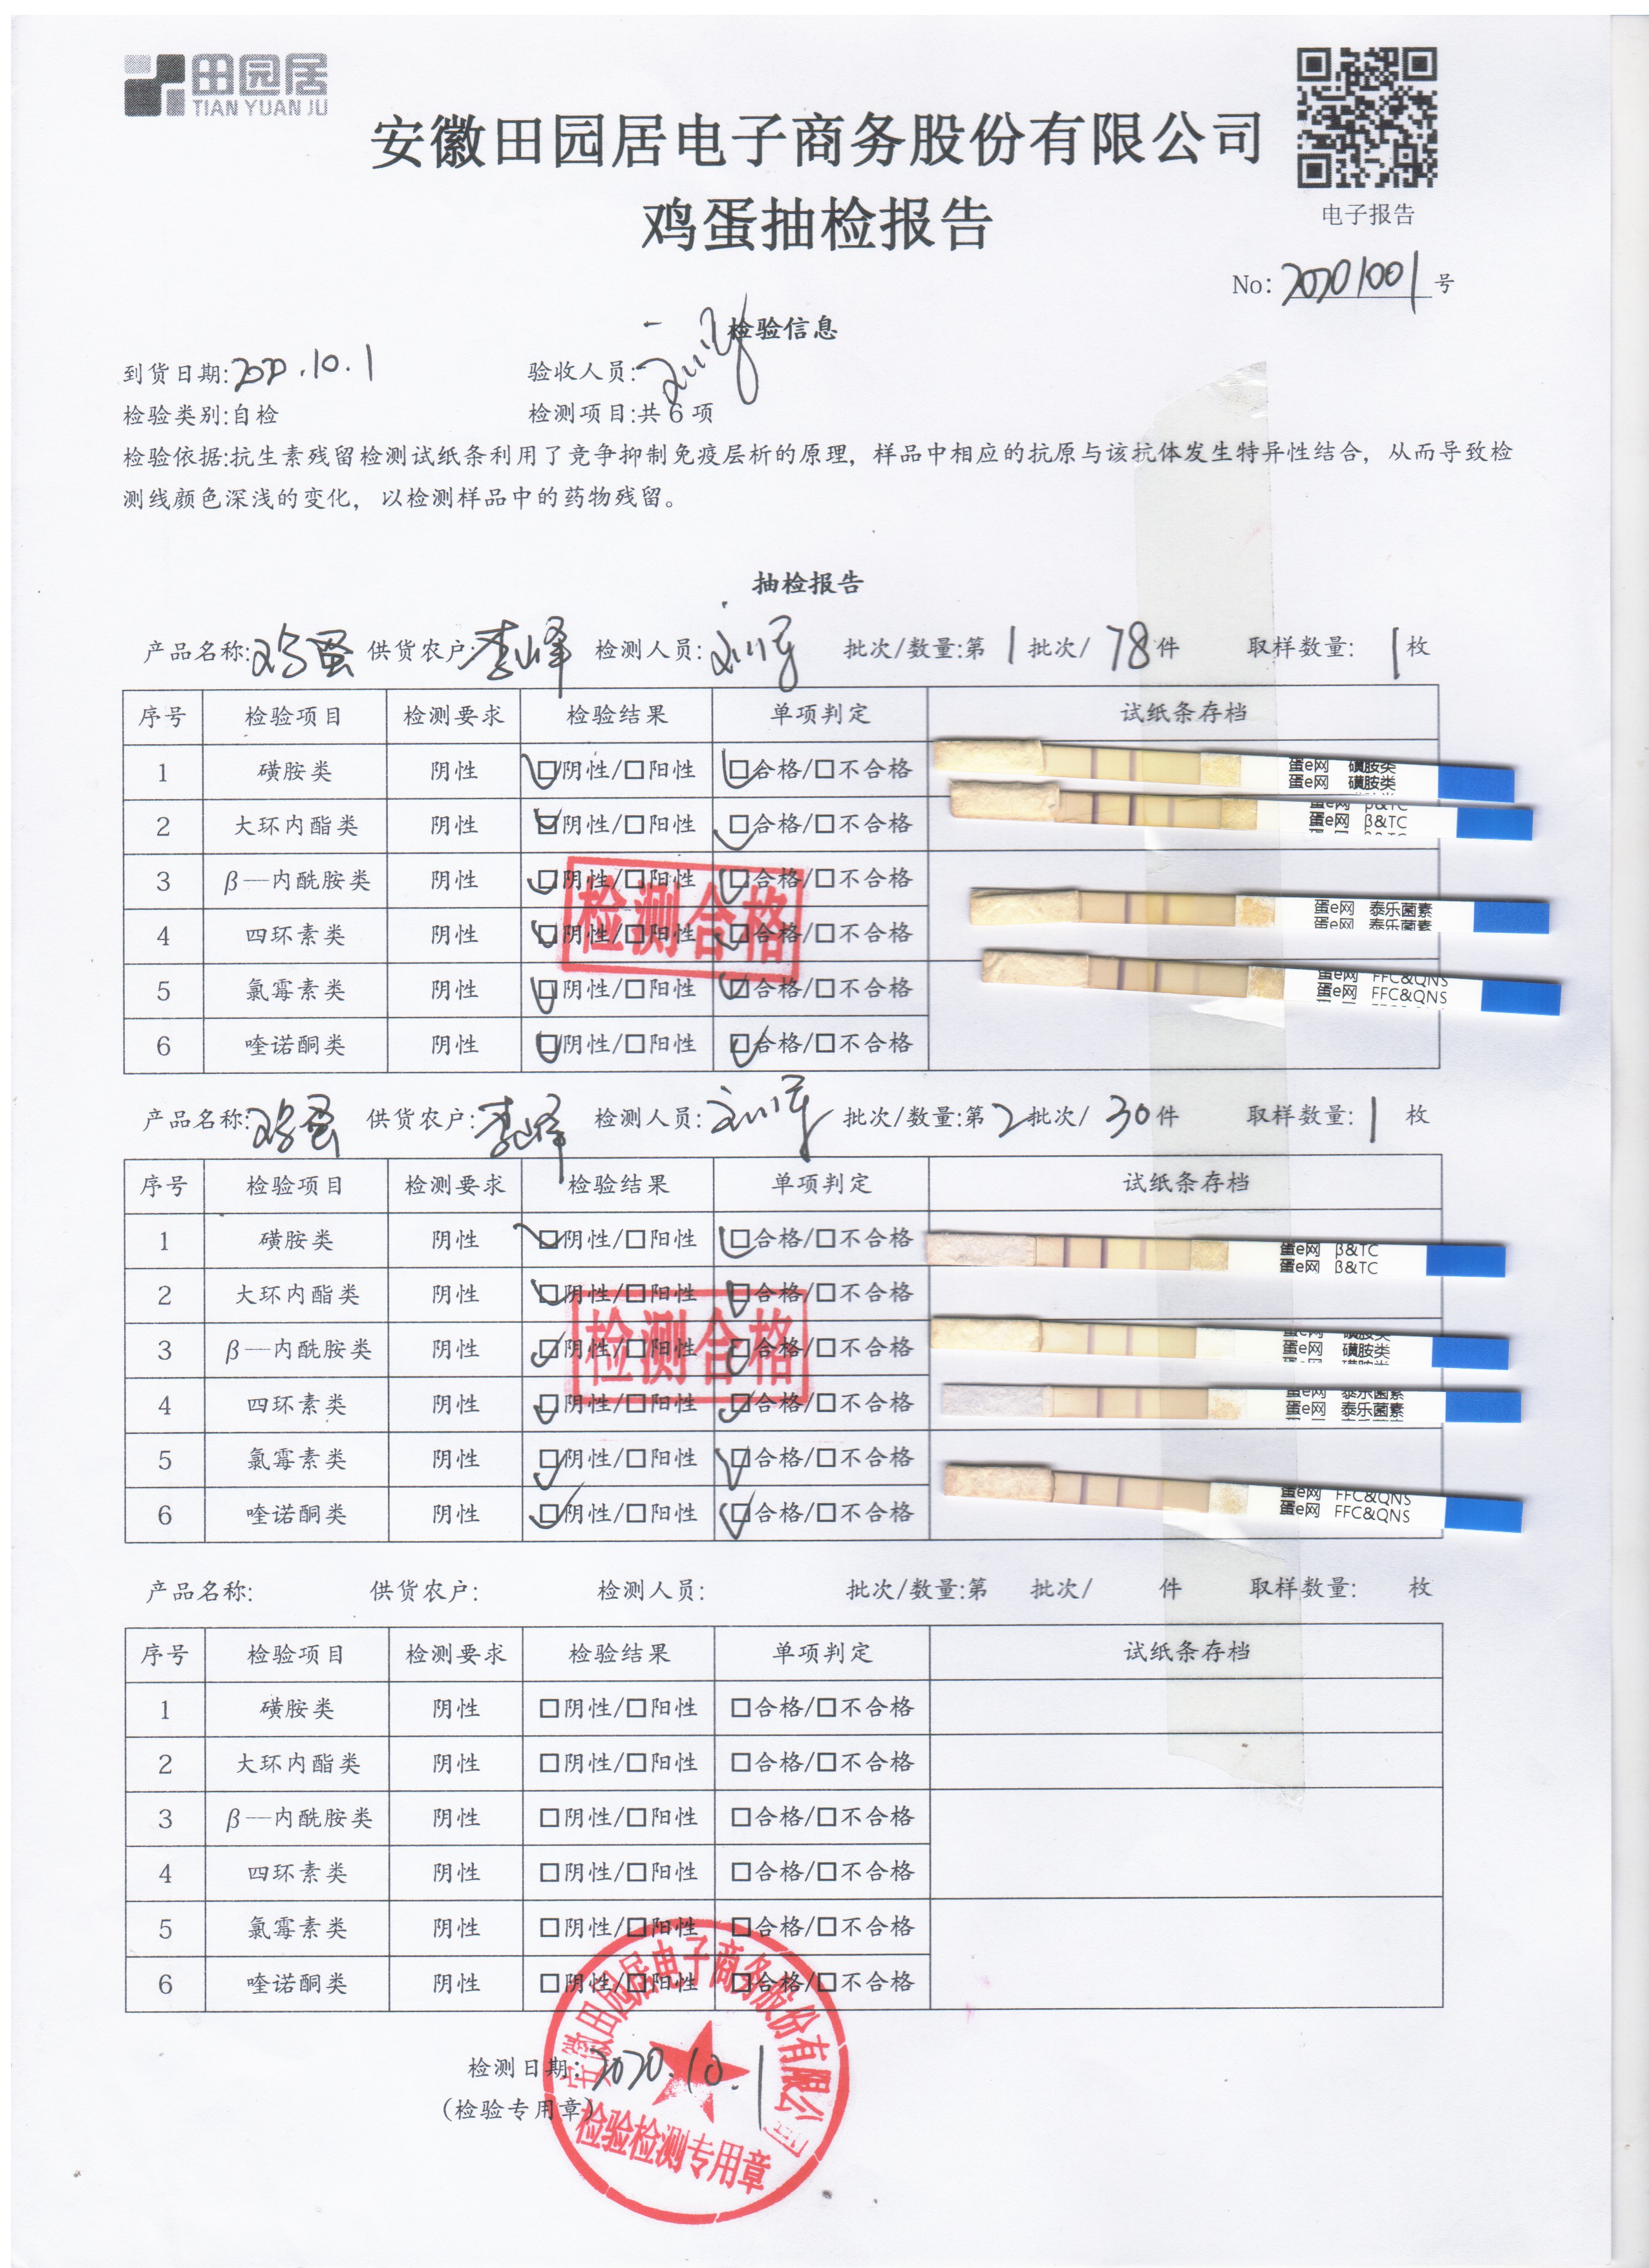 田园居
TIAN YUAN JU
安徽田园居电子商务股份有限公司
鸡蛋抽检报告
电子报告
No: 20201001号
检验信息
到货日期:2020.10.1 验收人员:
检验类别:自检 检测项目:共6项
检验依据:抗生素残留检测试纸条利用了竞争抑制免疫层析的原理，样品中相应的抗原与该抗体发生特异性结合，从而导致检
测线颜色深浅的变化，以检测样品中的药物残留。
抽检报告
产品名称:鸡蛋 供货农户:李峰 检测人员: 批次/数量:第1批次/78件 取样数量: 1枚
序号 检验项目 检测要求 检验结果 单项判定 试纸条存档
1 磺胺类 阴性 ☑阴性/☐阳性 ☑合格/☐不合格 蛋e网 磺胺类
蛋e网 磺胺类
2 大环内酯类 阴性 ☑阴性/☐阳性 ☑合格/☐不合格 蛋e网 β&TC
蛋e网 β&TC
3 β—内酰胺类 阴性 ☑阴性/☐阳性 ☑合格/☐不合格 蛋e网 泰乐菌素
蛋e网 泰乐菌素
4 四环素类 阴性 ☑阴性/☐阳性 ☑合格/☐不合格
检测合格
5 氯霉素类 阴性 ☑阴性/☐阳性 ☑合格/☐不合格 蛋e网 FFC&QNS
蛋e网 FFC&QNS
6 喹诺酮类 阴性 ☑阴性/☐阳性 ☑合格/☐不合格
产品名称:鸡蛋 供货农户:李峰 检测人员: 批次/数量:第2批次/30件 取样数量: 1枚
序号 检验项目 检测要求 检验结果 单项判定 试纸条存档
1 磺胺类 阴性 ☑阴性/☐阳性 ☑合格/☐不合格 蛋e网 β&TC
蛋e网 β&TC
2 大环内酯类 阴性 ☑阴性/☐阳性 ☑合格/☐不合格
检测合格
3 β—内酰胺类 阴性 ☑阴性/☐阳性 ☑合格/☐不合格 蛋e网 磺胺类
蛋e网 磺胺类
4 四环素类 阴性 ☑阴性/☐阳性 ☑合格/☐不合格 蛋e网 泰乐菌素
蛋e网 泰乐菌素
5 氯霉素类 阴性 ☑阴性/☐阳性 ☑合格/☐不合格
6 喹诺酮类 阴性 ☑阴性/☐阳性 ☑合格/☐不合格 蛋e网 FFC&QNS
蛋e网 FFC&QNS
产品名称: 供货农户: 检测人员: 批次/数量:第 批次/ 件 取样数量: 枚
序号 检验项目 检测要求 检验结果 单项判定 试纸条存档
1 磺胺类 阴性 ☐阴性/☐阳性 ☐合格/☐不合格
2 大环内酯类 阴性 ☐阴性/☐阳性 ☐合格/☐不合格
3 β—内酰胺类 阴性 ☐阴性/☐阳性 ☐合格/☐不合格
4 四环素类 阴性 ☐阴性/☐阳性 ☐合格/☐不合格
5 氯霉素类 阴性 ☐阴性/☐阳性 ☐合格/☐不合格
6 喹诺酮类 阴性 ☐阴性/☐阳性 ☐合格/☐不合格
安徽田园居电子商务股份有限公司
检测日期:2020.10.1
(检验专用章)
检验检测专用章